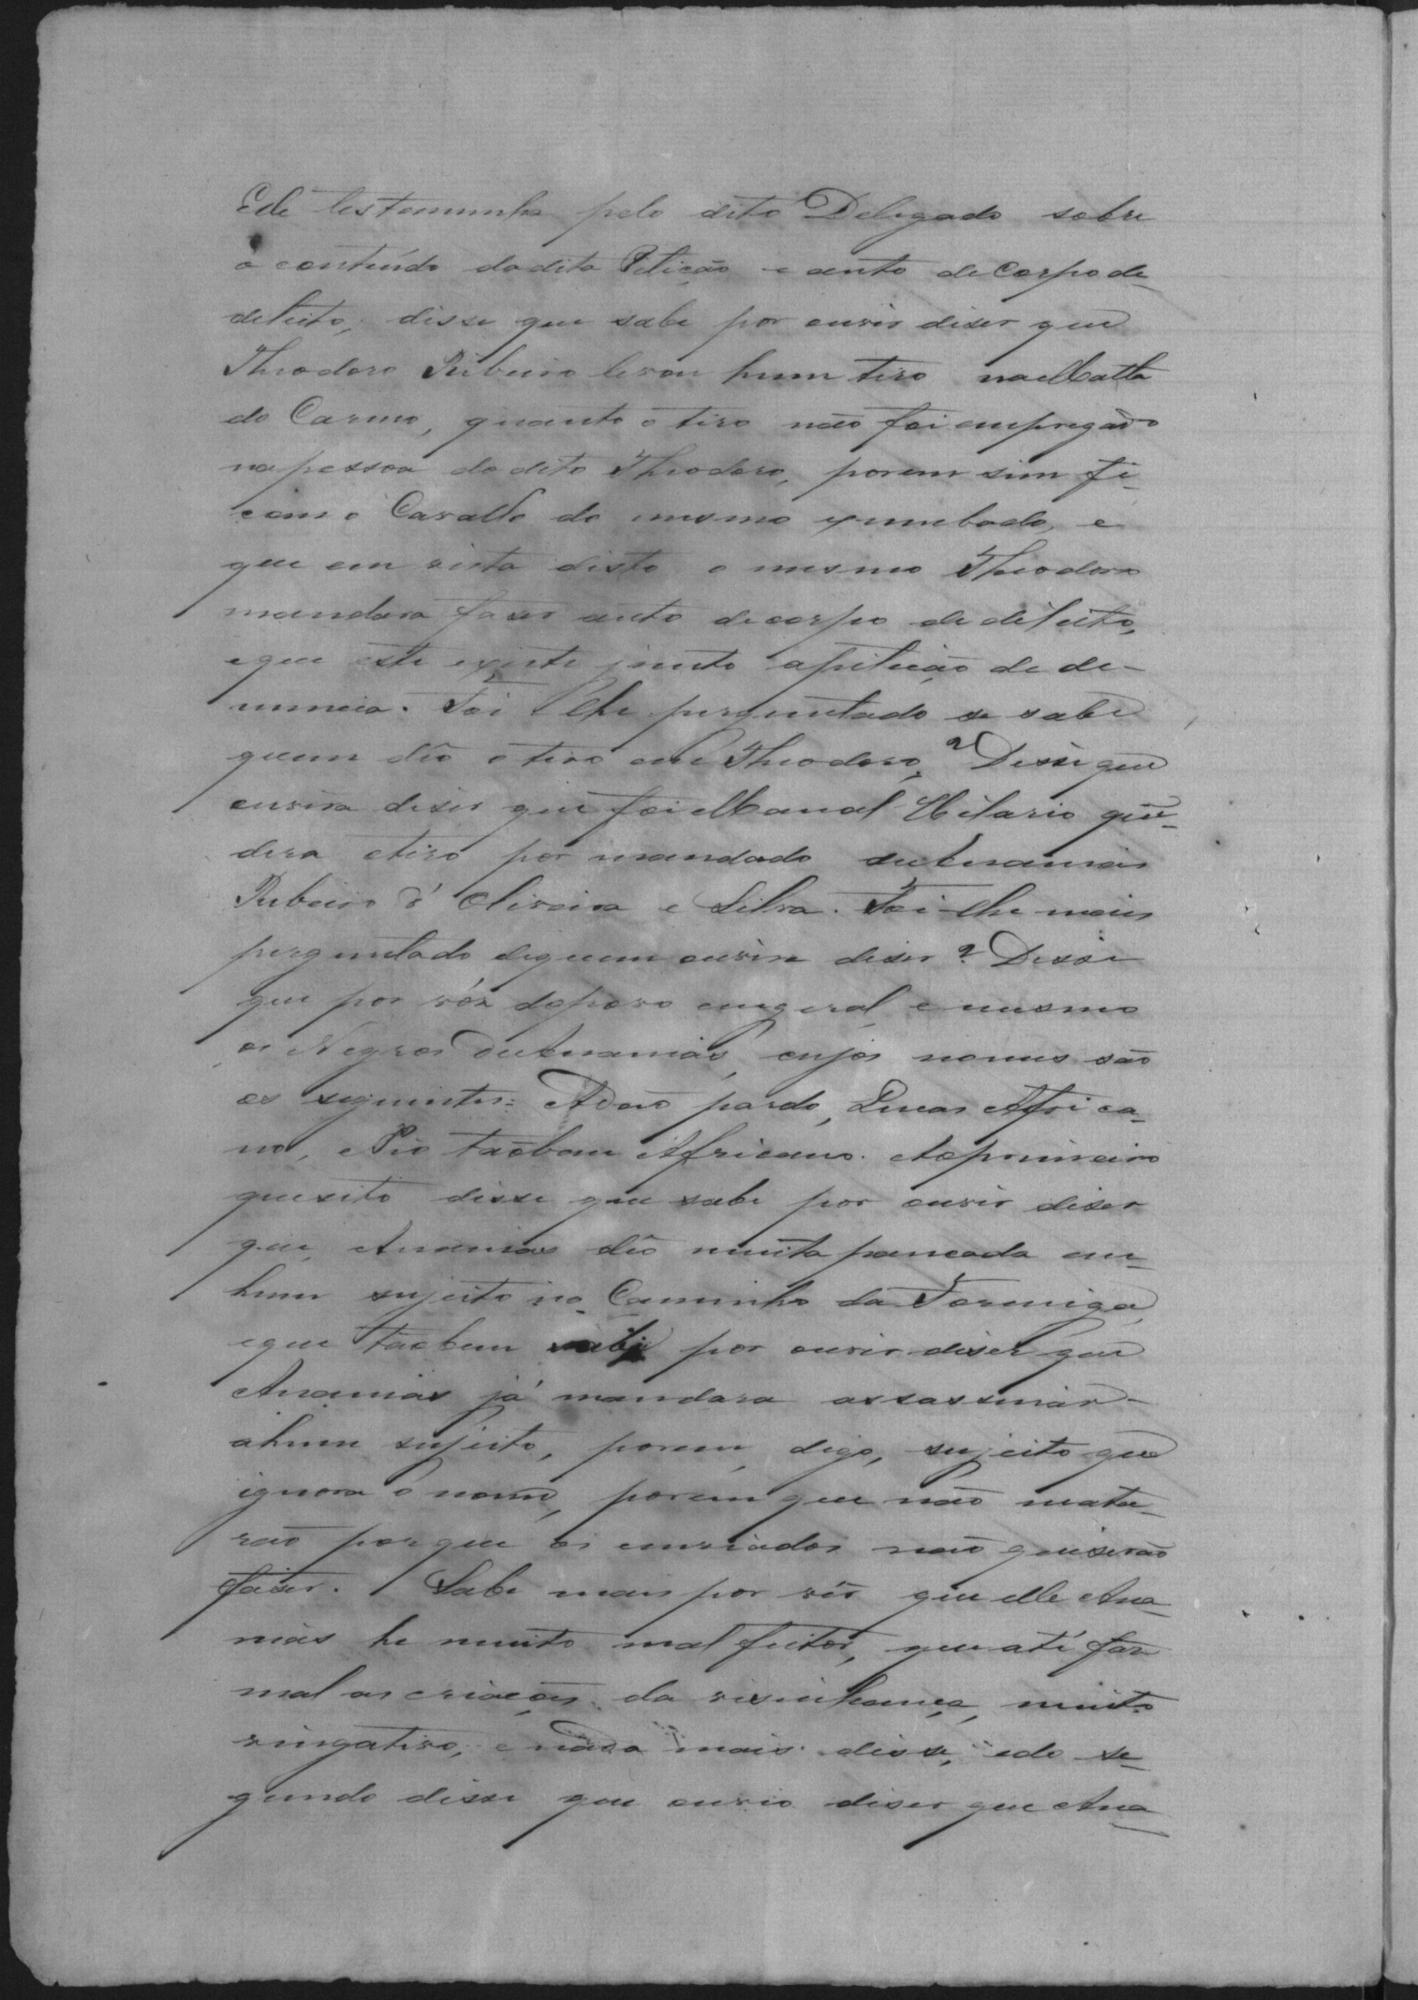 Elle testemunha pelo dito Delegado sobre
o contéudo da dita Petição e auto de Corpo de
delicto, disse que sabe por ouvir diser que
Theodoro Ribeiro levou hum tiro na Matta
do Carmo, quanto o tiro não foi empregado
na pessoa do dito Theodoro, porem sim fi-
cou o Cavallo do mesmo xumbado, e
que em vista disto o mesmo Theodoro
mandara faser auto de corpo de delicto,
e que este existe junto a petição de de-
nuncia. Foi lhe perguntado se sabe
quem dêo o tiro em Theodoro? Disse que
ouvira diser que foi Manoel Hilario que
dera o tiro por mandado de Ananias
Ribeiro d' Oliveira e Silva. Foi-lhe mais
perguntado de quem ouvira diser? Disse
que por vóz do povo em geral, e mesmo
os Negros de Ananias, cujos nomes são
os seguintes: Adão pardo, Lucas Africa-
no, e Pio taobem Africano. Ao primeiro
quesito disse que sabe por ouvir diser
que Ananias dêo muita pancada em
hum sujeito no Caminho da Formiga,
e que taobem sabe por ouvir diser que
Ananias já mandara assassinar
a hum sujeito, porem, digo, sujeito que
ignora o nome, porem que não mata-
rão porque os enviados não quiserão
faser. Sabe mais por vóz que elle Ana-
nias he muito mal feitor, que até faz
mal as criações da visinhança, muito
vingativo, e nada mais disse, e do se-
gundo disse que ouvio diser que Ana-